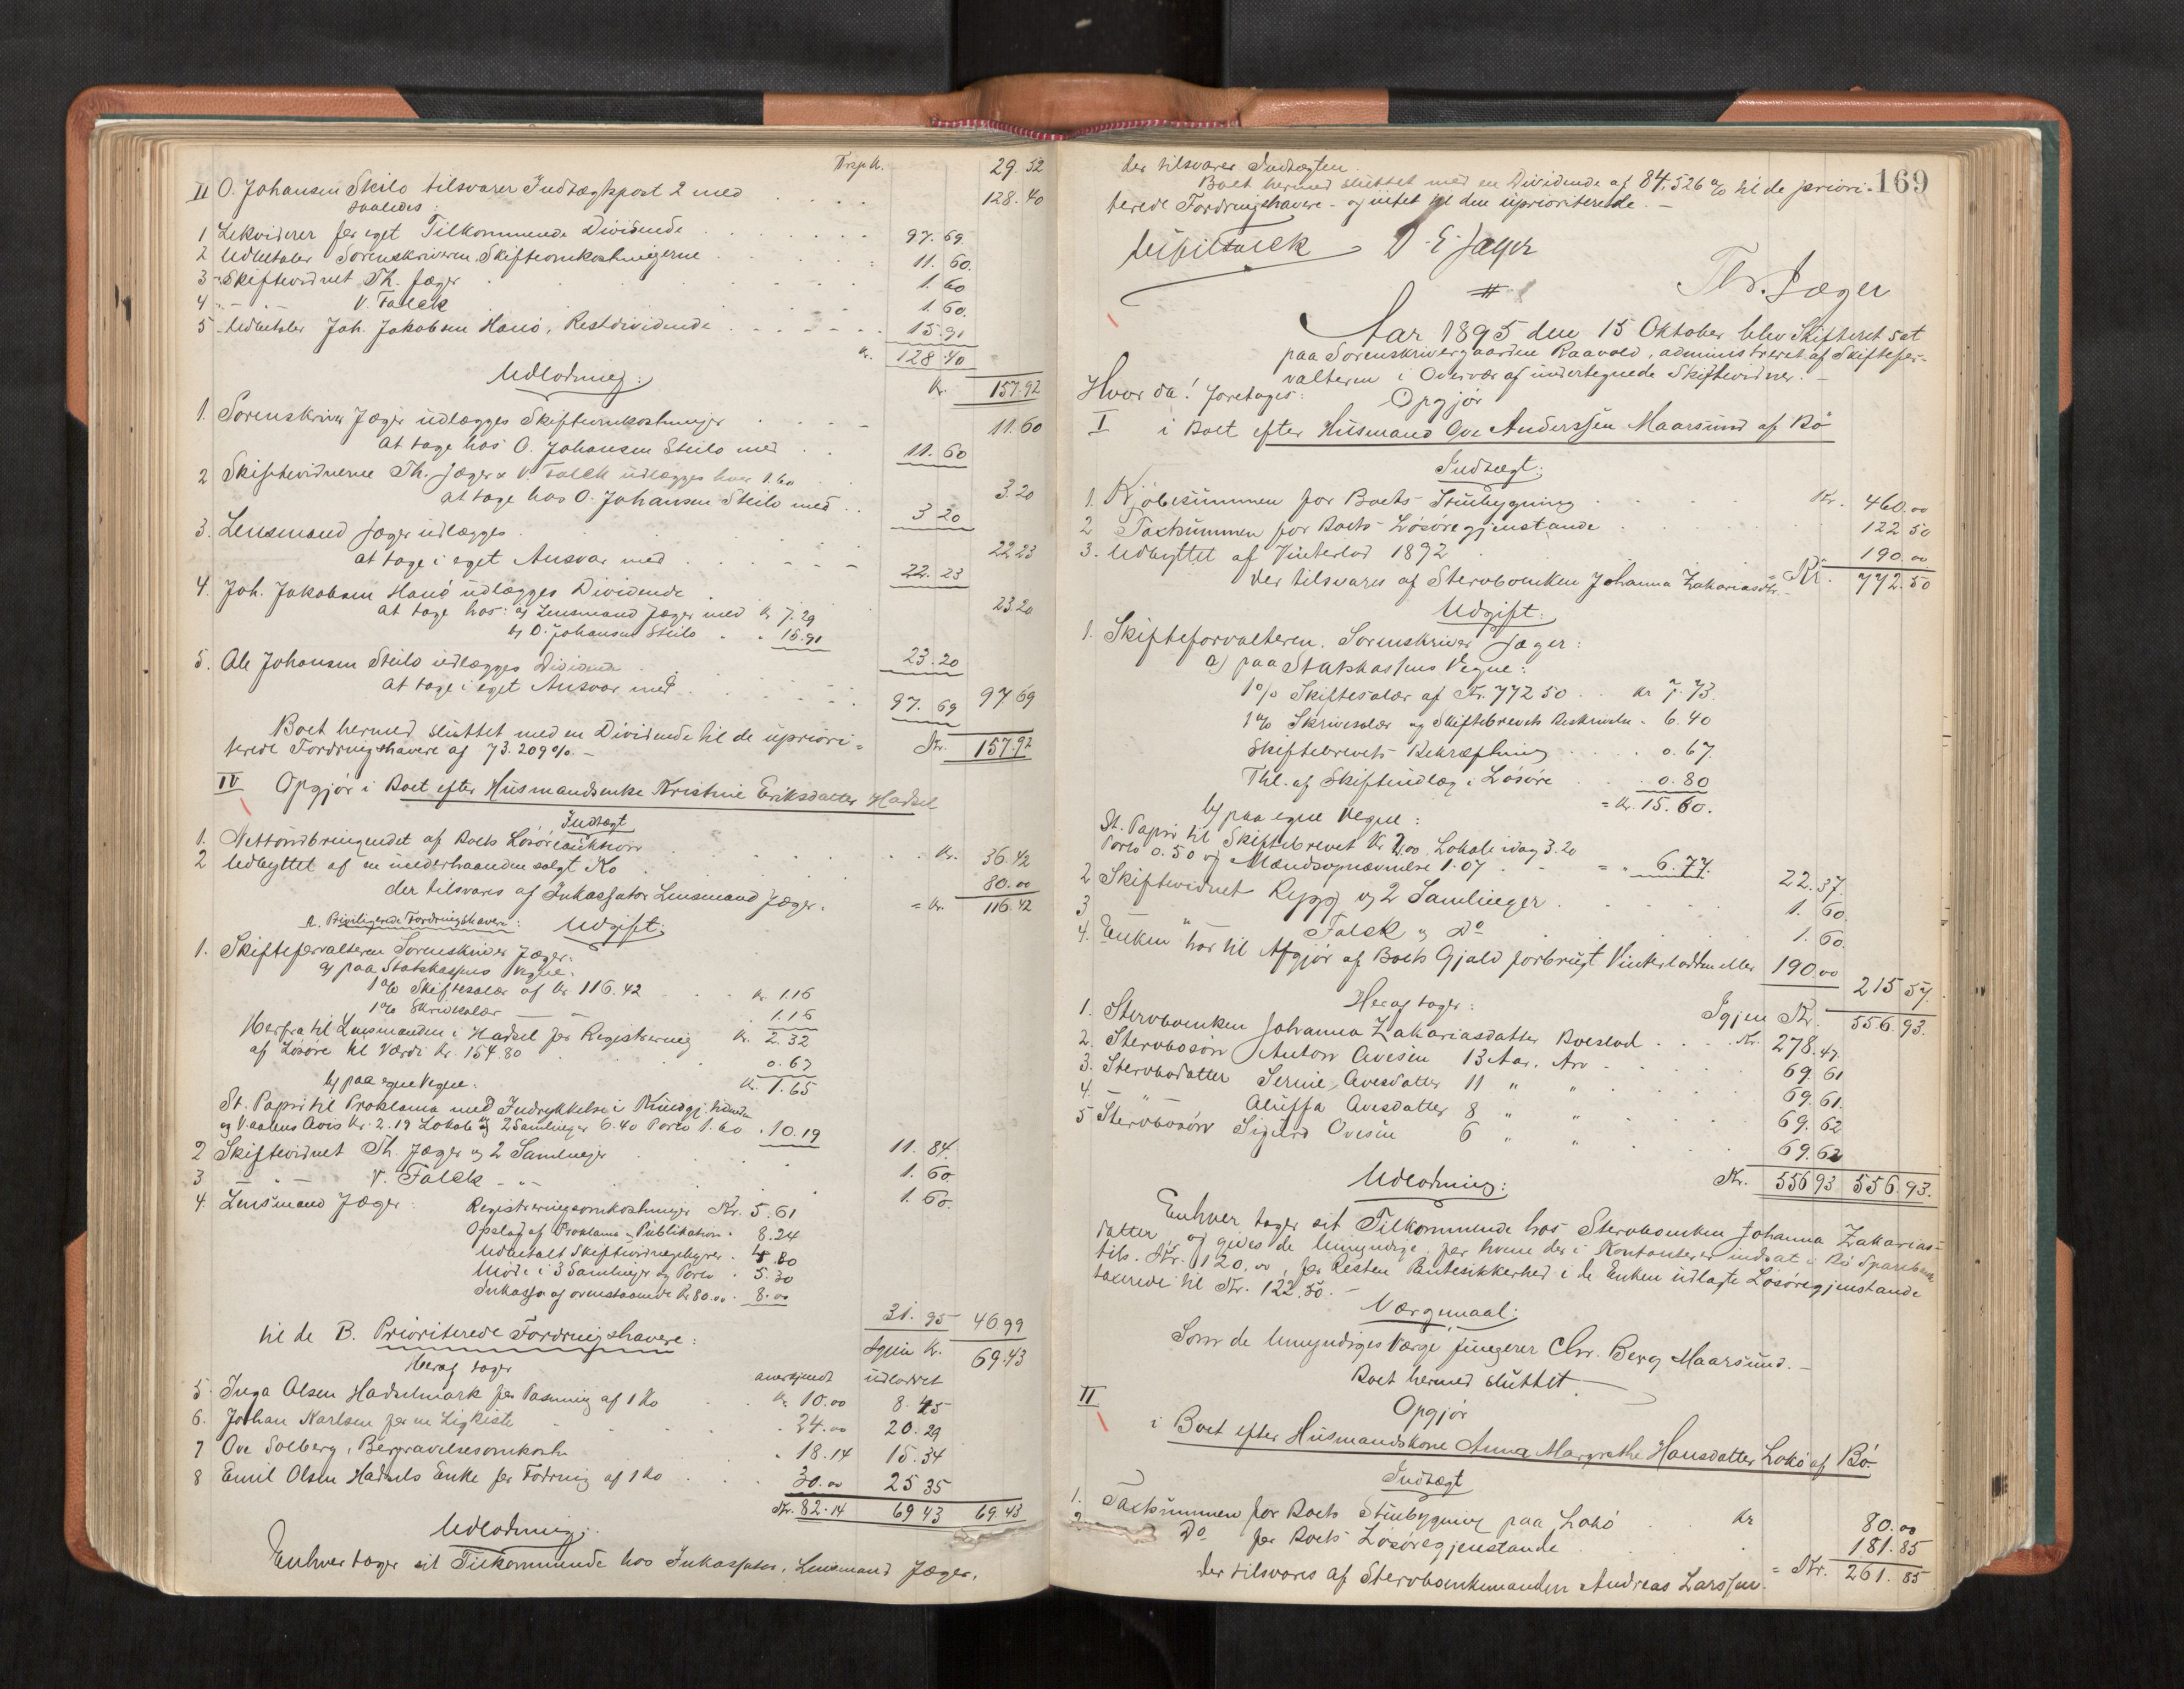 Trspk. 29.52
II O. Johansen Steilo tilsvarer Indtægtspost 2 med 128.40
saaledes:
1 Likviderer for eget Tilkommende Dividende 97.69
2 Udbetaler Sorenskriveren Skifteomkostningerne 11.60
3 " Skiftevidnet Th. Jæger 1.60
4 " - " - V. Falck 1.60
5 Udbetaler Joh. Jakobsen Hanö, Restdividende 15.91
Kr. 128.40
Kr. 157.92
Udlodning:
1. Sorenskriver Jæger udlægges Skifteomkostninger 11.60
at tage hos O. Johansen Steilo med 11.60
2 Skiftevidnerne Th. Jæger & V. Falck udlægges hver 1.60 3.20
at tage hos O. Johansen Steilo med 3 20
3. Lensmand Jæger udlægges 22.23
at tage i eget Ansvar med 22.23
4. Joh. Jakobsen Hanö udlægges Dividende 23.20
at tage hos: a) Lensmand Jæger med Kr 7.29
b) O. Johansen Steilo " 15.91
23.20
5. Ole Johansen Steilo udlægges Dividende 97.69
at tage i eget Ansvar med 97.69
Boet hermed sluttet med en Dividende til de upriori= Kr. 157.92
terede Fordringshavere af 73.209%. -
IV Opgjör i Boet efter Husmandsenke Kristine Eriksdatter Hadsel
Indtægt
1. Nettoindbringendet af Boets Lösöreauktion Kr. 36.42
2 Udbyttet af en underhaanden solgt Ko 80.00
der tilsvares af Inkassator Lensmand Jæger. = Kr. 116.42
A. Privilegerede Fordringshavere: Udgift:
1. Skifteforvalteren Sorenskriver Jæger:
a) paa Statskassens Vegne:
1% Skiftesalær af Kr 116.42 Kr. 1.16
1% Skrivesalær - " - 1.16
Kr. 2.32
Herfra til Lensmanden i Hadsel for Registrering
af Lösöre til Værdi Kr. 154.80 0.67
Kr. 1.65
b) paa egne Vegne:
St. Papir til Proklama med Indrykkelse i Kundgj. tidende
og V.aalens Avis Kr. 2.19 Lokale og 2 Samlinger 6.40 Porto 1.60 . 10.19
11.84
2 Skiftevidnet Th. Jæger og 2 Samlinger 1.60
3 - " - V. Falck - " - 1.60
4. Lensmand Jæger: Registreringsomkostninger Kr. 5.61
Opslag af Proklama og Publikation . 8.24
Udbetalt Skiftevidnegebyrer . 4.80
Möde i 3 Samlinger og Porto . 5.30
Inkasso af ovenstaaende Kr 80.00 . 8.00
31.95 46 99
til de B. Prioriterede Fordringshavere: Igjen Kr. 69.43
Heraf tager anerkjendt udloddet
5 Inga Olsen Hadselmark for Pasning af 1 Ko Kr 10.00 8.45
6. Johan Karlsen for en Ligkiste . 24.00 20.29
7 Ove Solberg, Begravelsesomkostn . 18.14 15.34
8 Emil Olsen Hadsels Enke for Fodring af 1 Ko 30.00 25 35
Kr. 82.14 69 43 69.43
Udlodning:
Enhver tager sit Tilkommende hos Inkassator, Lensmand Jæger,
169
der tilsvarer Indtægten.
Boet hermed sluttet med en Dividende af 84.526% til de priori=
terede Fordringshavere - og intet til den uprioriterede. -
Falck D. E. Jæger
Th. Jæger
#
Aar 1895 den 15 Oktober blev Skifteret sat
paa Sorenskrivergaarden Raavold, administreret af Skiftefor=
valteren i Overvær af undertegnede Skiftevidner. -
Hvor da! foretages:
Opgjör
I i Boet efter Husmand Ove Anderssen Maarsund af Bö
Indtægt:
1. Kjöbesummen for Boets Stuebygning Kr. 460.00
2 Taxtsummen for Boets Lösöregjenstande 122 50
3. Udbyttet af Vinterlod 1892 190.00
der tilsvares af Stervboenken Johanna Zakariasdtr. = Kr. 772.50
Udgift:
1. Skifteforvalteren, Sorenskriver Jæger:
a) paa Statskassens Vegne:
1% Skiftesalær af Kr. 772 50 Kr 7.73.
1% Skrivesalær og Skiftebrevets Beskrivelse . 6.40
Skiftebrevets Bekræftning . 0.67.
Thl. af Skifteudlæg i Lösöre . 0.80
= Kr. 15.60.
b) paa egne Vegne:
St. Papir til Skiftebrevet Kr 2.00 Lokale idag 3.20
Porto 0.50 og Mændsopnævnelse 1.07 = " 6.77.
22.37.
2 Skiftevidnet Repp og 2 Samlinger 1.60.
3 " Falck og Do 1.60.
4. Enken har til Afgjör af Boets Gjæld forbrugt Vinterlodden eller 190.00
215 57.
Heraf tager: Igjen Kr. 556.93.
1. Stervboenken Johanna Zakariasdatter Boeslod Kr. 278.47
2. Stervbosön Anton Ovesen 13 Aar, Arv 69.61
3. Stervbodatter Serine Ovesdatter 11 " " 69.61.
4. " Aluffa Ovesdatter 8 " " 69.62
5 Stervbosön Sigurd Ovesen 6 " " 69.62
Kr. 556 93 556.93.
Udlodning:
Enhver tager sit Tilkommende hos Stervboenken Johanna Zakarias-
datter og gives de Umyndige, for hvem der i Kontanter er indsat i Bö Sparebank
tils. Kr. 120.00, for Resten Pantesikkerhed i de Enken udlagte Lösöregjenstande
taxerede til Kr. 122.50. -
Værgemaal:
Som de Umyndiges Værge fungerer Chr. Berg Maarsund. -
Boet hermed sluttet -
II Opgjör
i Boet efter Husmandskone Anna Margrethe Hansdatter Lokö af Bö
Indtægt
1. Taxtsummen for Boets Stuebygning paa Lokö Kr 80.00
2. Do for Boets Lösöregjenstande 181.85
der tilsvares af Stervboenkemanden Andreas Larssen. = Kr. 261.85